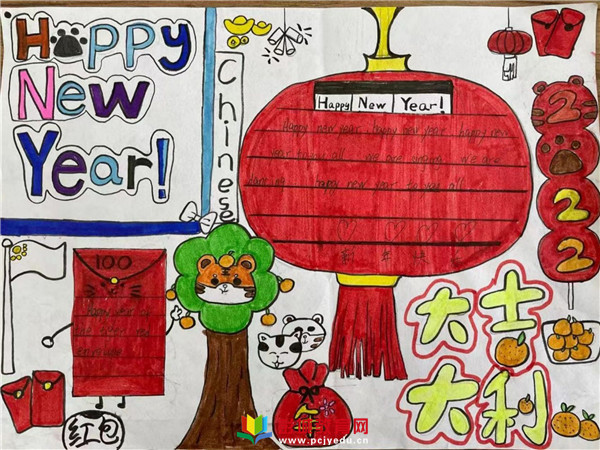 Happy
New
Year!
Chinese
Happy New Year!
Happy new year happy new year happy new
year to you all we are singing we are
dancing happy new year to you all
2
2
2
100
大吉
大利
红包
www.pcjyedu.cn